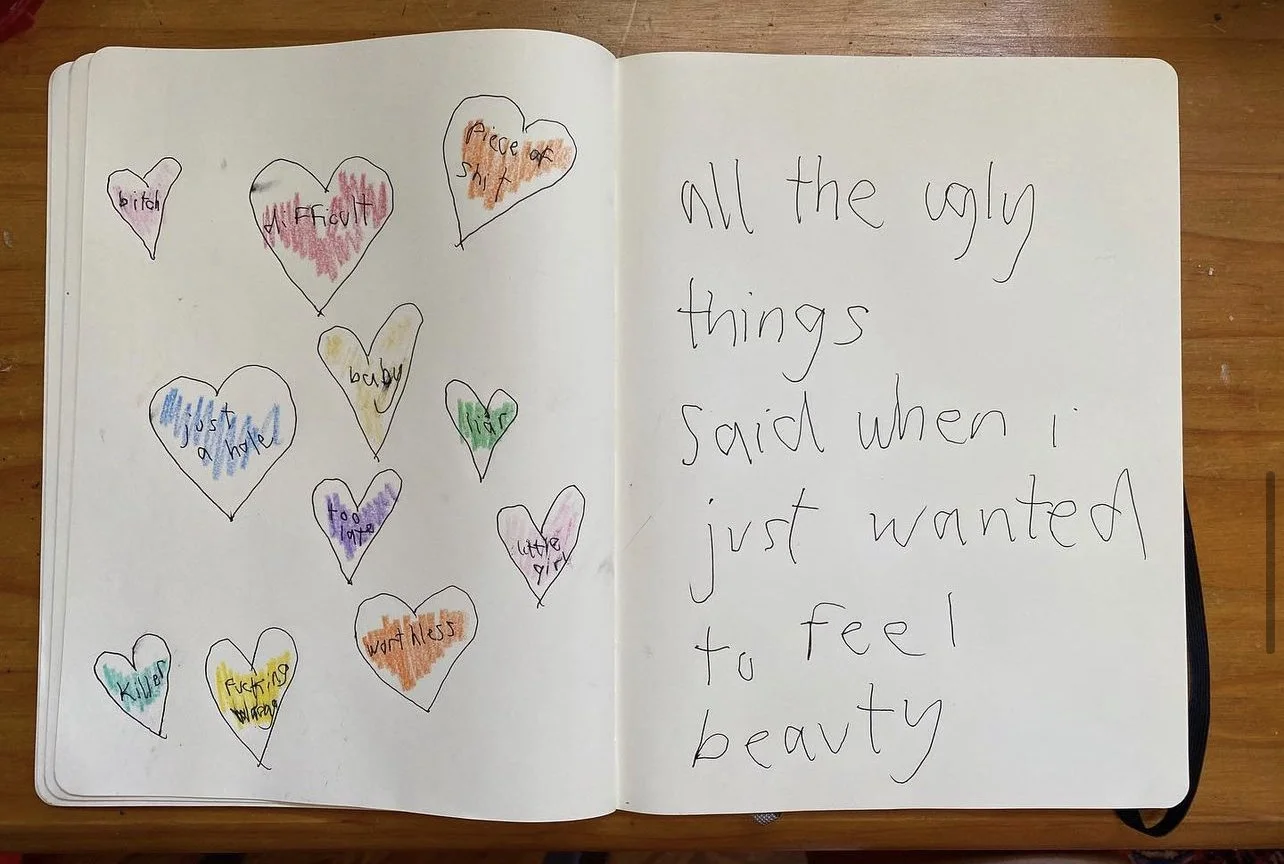 bitch
difficult
Piece of
shit
baby
just
a hole
liar
too
late
little
girl
worthless
killer
fucking
all the ugly
things
said when i
just wanted
to feel
beauty